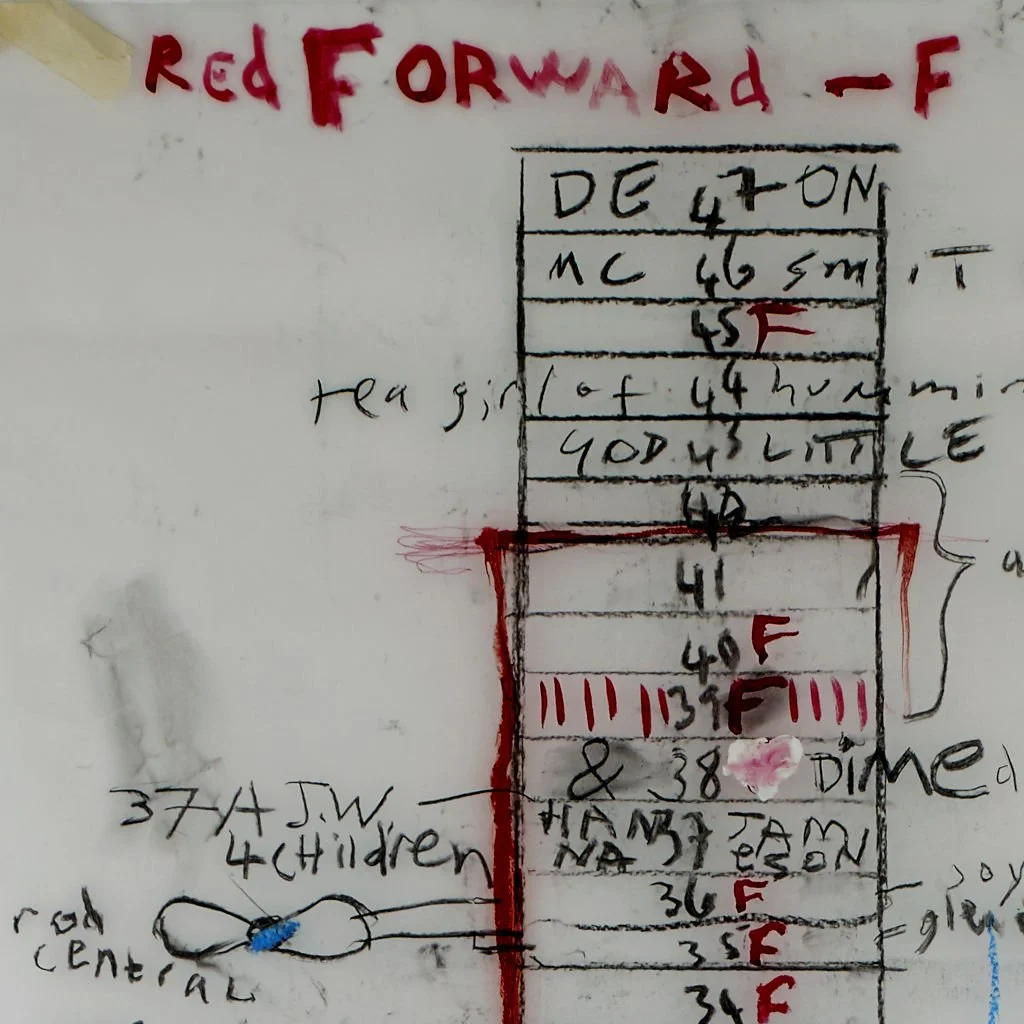 Red FORWARd - F
DE 47 ON
MC 46 SM IT
45 F
tea girl of 44 hummin
GOD 43 LITTLE
42
41
40 F
39 F
& 38 DiMed
37A J.W. 4 CHildren
HANNA 37 JAMIESON
36 F
35 F
rod central
34 F